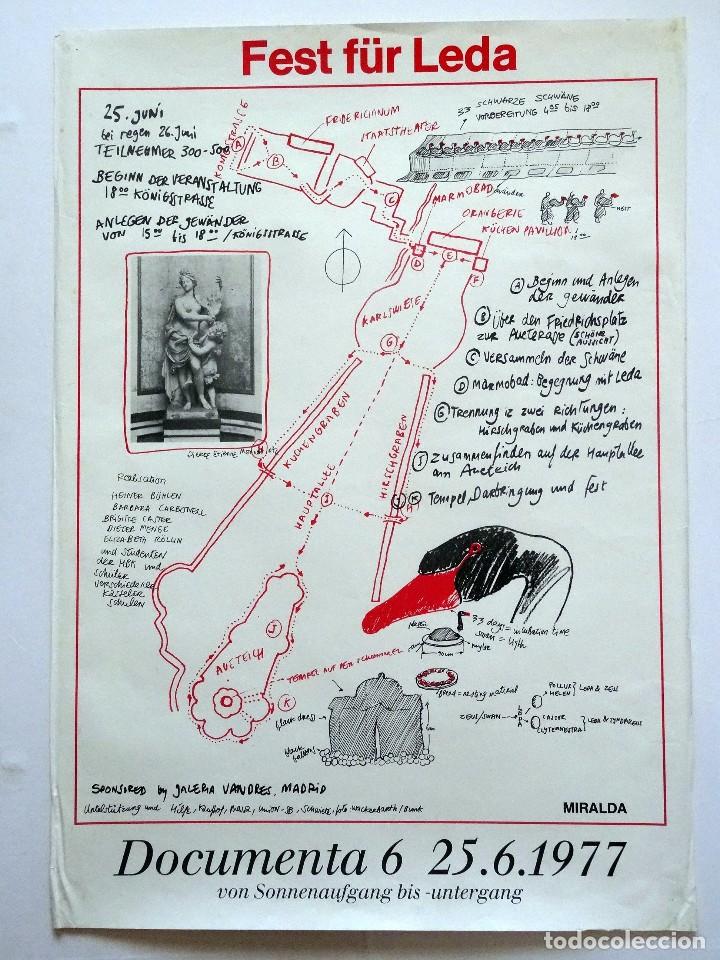 Fest für Leda
25. JUNI
bei regen 26. Juni
TEILNEHMER 300-500
BEGINN DER VERANSTALTUNG
18⁰⁰ KÖNIGSSTRASSE
ANLEGEN DER GEWÄNDER
VON 15⁰⁰ bis 18⁰⁰ / KÖNIGSSTRASSE
KÖNIGSSTRASSE
FRIDERICIANUM
STAATSTHEATER
33 SCHWARZE SCHWÄNE
VORBEREITUNG
A
B
C
MARMORBAD
ORANGERIE
KÜCHEN PAVILLION
18⁰⁰
D
E
F
KARLSWIESE
G
KÜCHENGRABEN
HAUPTALLEE
HIRSCHGRABEN
H
H
I
J
K
AUETEICH
TEMPEL AUF DEM
A Beginn und Anlegen
der gewänder
B über den Friedrichsplatz
zur Aueterasse (SCHÖNE
AUSSICHT)
C VERSAMMELN DER Schwäne
D Marmobad: Begegnung mit Leda
G Trennung in zwei Richtungen:
Hirschgraben und Küchengraben
J Zusammenfinden auf der Hauptallee
am Aueteich
K Tempel, Darbringung und Fest
Realisation
HEINER BÜHLEN
BARBARA CARBONELL
BRIGITE CASTER
DIETER MENGE
ELIZABETH ROLLIN
und Studenten
der HBK und
Schüler
verschiedener
Kasseler
Schulen
33 days = incubation time
swan = Myth
90 cm
bread = nesting material
black dress
black balloons
ZEUS/SWAN
LEDA
POLLUX
HELEN
LEDA & ZEUS
CASTOR
CLYTEMNESTRA
LEDA & TYNDAREUS
SPONSIRED by GALERIA VANDRES, MADRID
Unterstützung und Hilfe, Kaufhof,
MIRALDA
Documenta 6 25.6.1977
von Sonnenaufgang bis -untergang
todocoleccion